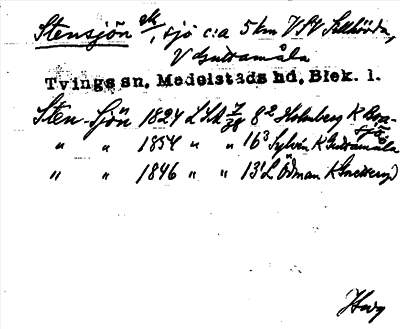 Stensjön ek/, sjö c:a 5 km VSV Sillhövda,
V Guttamåla
Tvings sn, Medelstads hd, Blek. l.
Sten-Sjön 1824 LSA 7/38 8² Holmberg K Bra-
" " 1854 " " 16³ Sylvén K Guttamåla
" " 1846 " " 13¹ L Ödman K